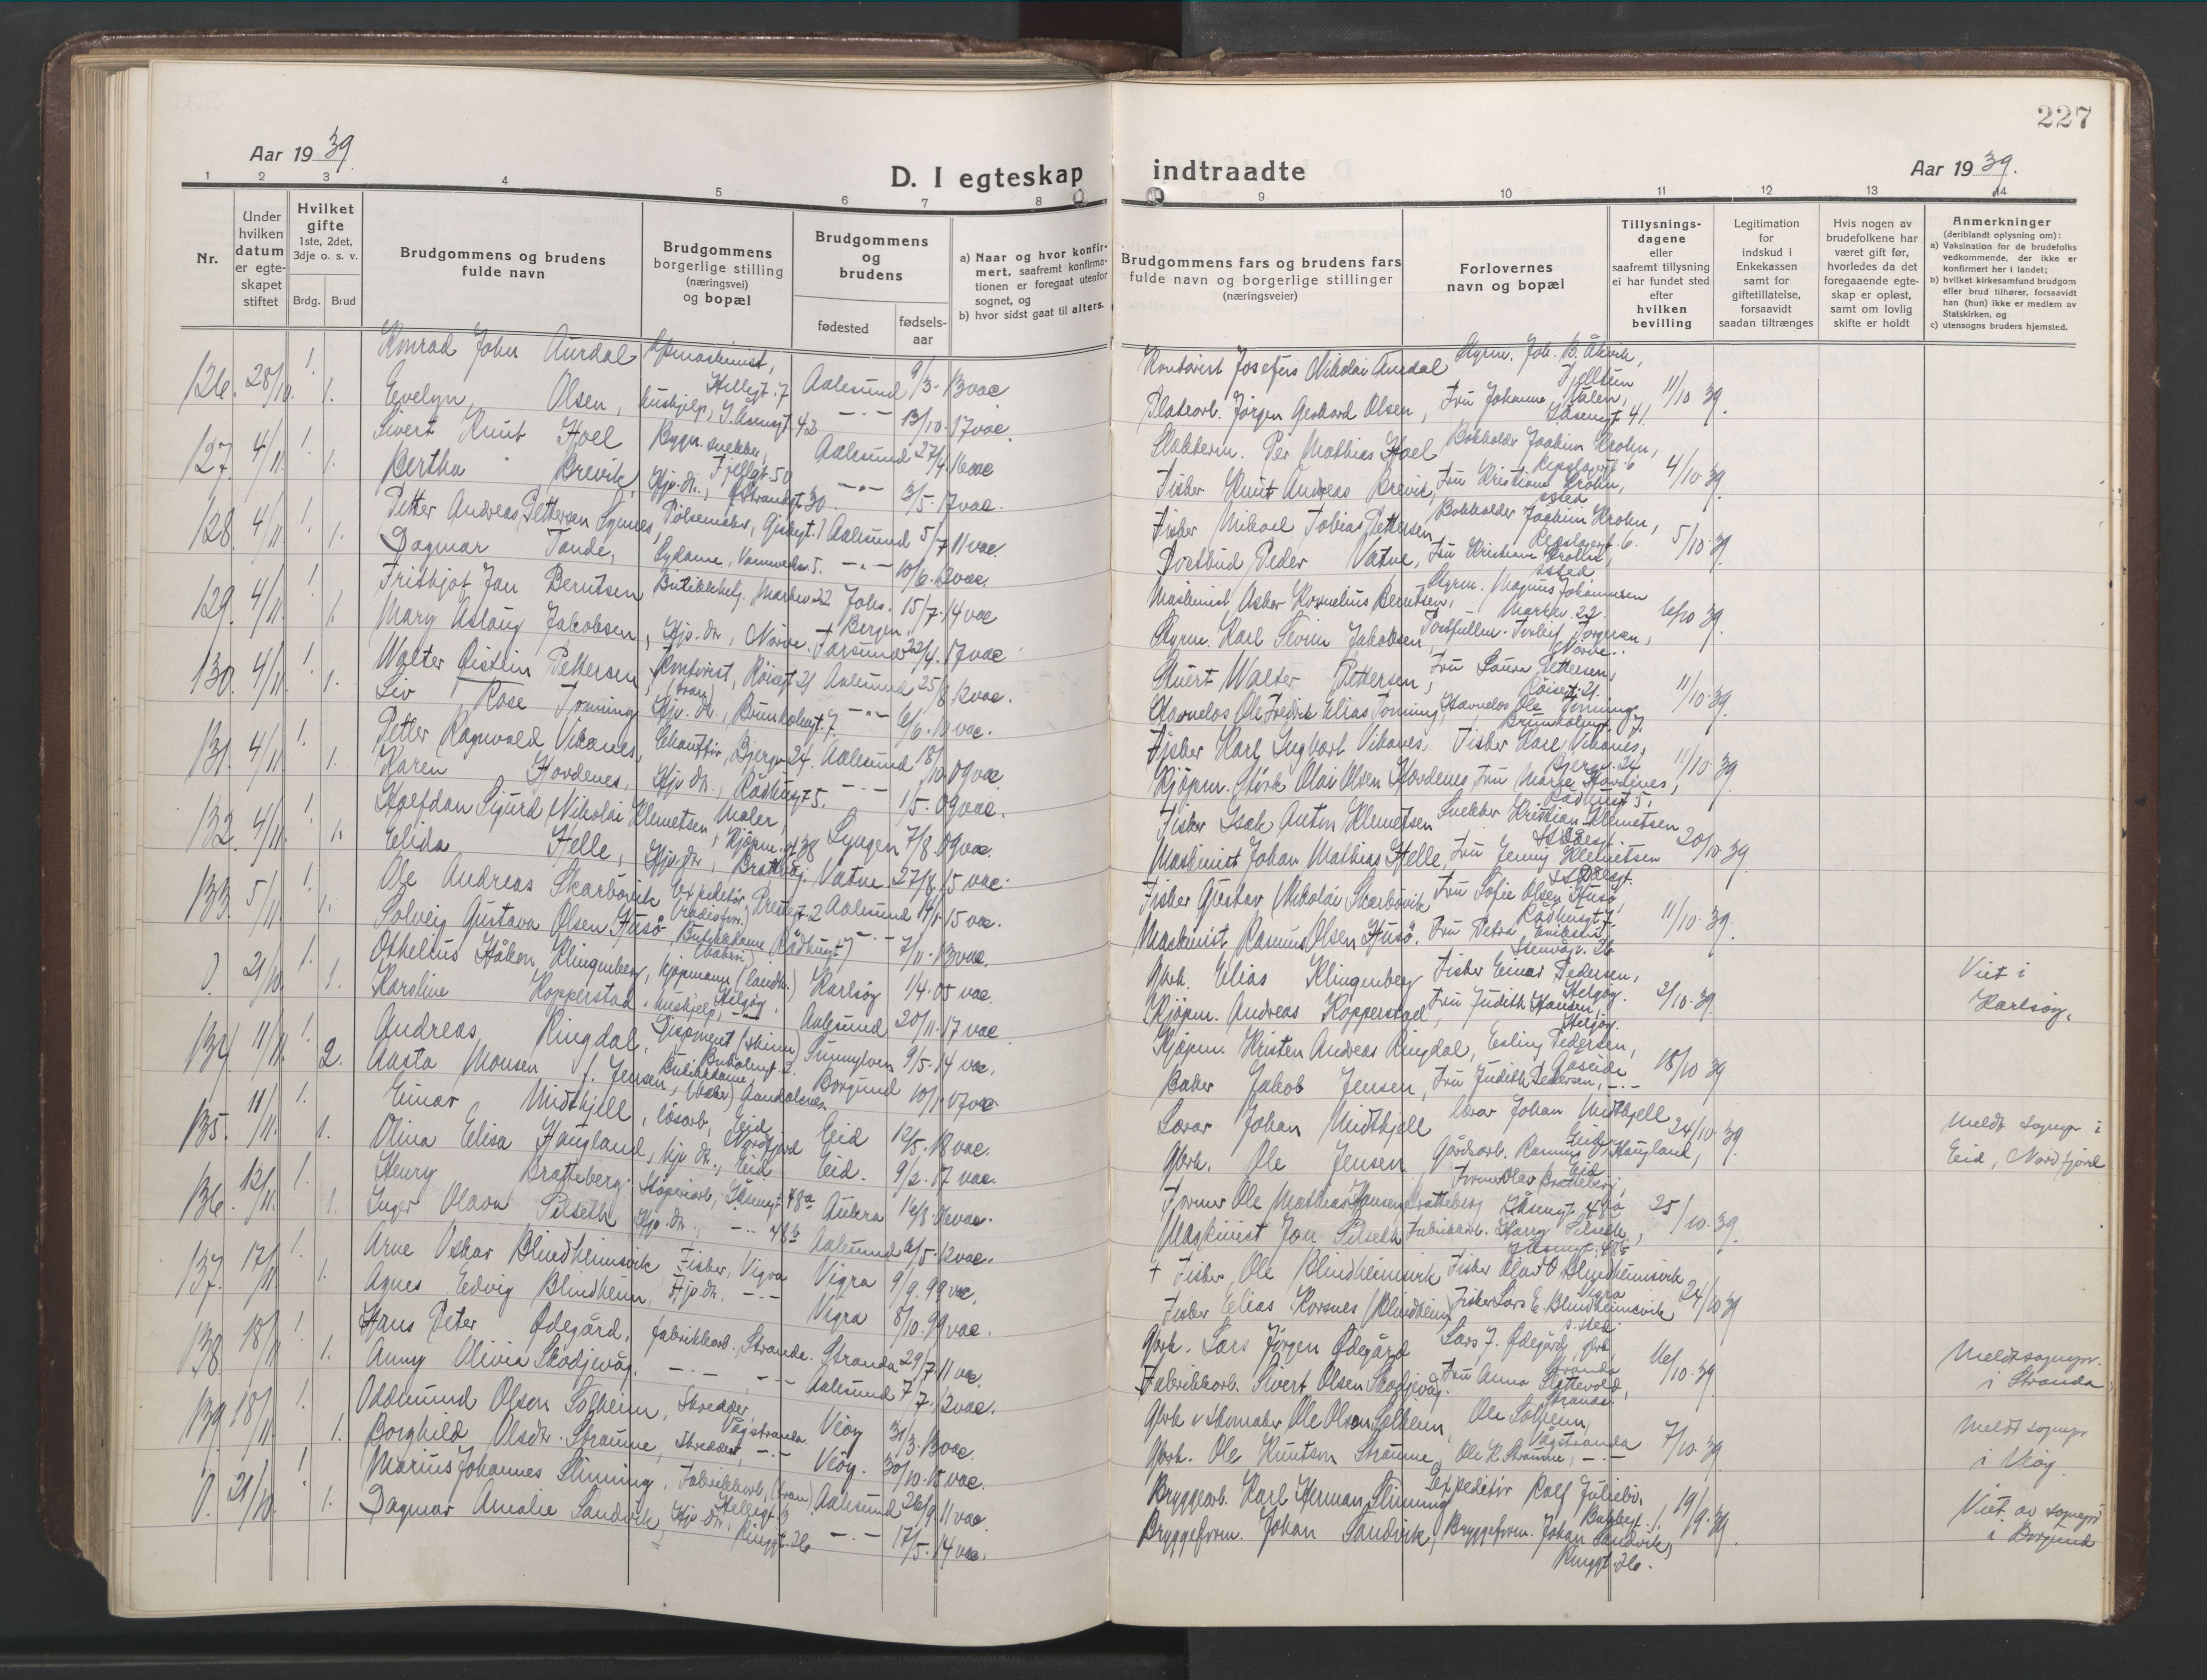 227
Aar 1939.
D. I egteskap
indtraadte
Aar 1939.
1 2 3 4 5 6 7 8 9 10 11 12 13 14
Nr.
Under hvilken datum er egteskapet stiftet
Hvilket gifte 1ste, 2det, 3dje o. s. v.
Brdg. Brud
Brudgommens og brudens fulde navn
Brudgommens borgerlige stilling (næringsvei) og bopæl
Brudgommens og brudens
fødested
fødselsaar
a) Naar og hvor konfirmert, saafremt konfirmationen er foregaat utenfor sognet, og
b) hvor sidst gaat til alters.
Brudgommens fars og brudens fars fulde navn og borgerlige stillinger (næringsveier)
Forlovernes navn og bopæl
Tillysningsdagene eller saafremt tillysning ei har fundet sted efter hvilken bevilling
Legitimation for indskud i Enkekassen samt for giftetillatelse, forsaavidt saadan tiltrænges
Hvis nogen av brudefolkene har været gift før, hvorledes da det foregaaende egteskap er opløst, samt om lovlig skifte er holdt
Anmerkninger (deriblandt oplysning om):
a) Vaksination for de brudefolks vedkommende, der ikke er konfirmert her i landet;
b) hvilket kirkesamfund brudgom eller brud tilhører, forsaavidt han (hun) ikke er medlem av Statskirken, og
c) utensogns bruders hjemsted.
126. 28/10. 1. Konrad John Aurdal Hellegt. 7 Aalesund 9/3. 13 vac. Kontorist Josefus Nikolai Aurdal Styrm. Joh. B. Fjelltun 11/10 39.
1. Evelyn Olsen, hushjelp, 42 -"- 13/10. 17 vac. Jørgen Gerhard Olsen, Fru Johanne Valen, 41.
127. 4/11. 1. Sivert Knut Hoel Bygn. snekker, Fjellgt. 50 Aalesund 27/4. 16 vac Per Mathias Hoel Bokholder Joakim Krohn, 6 4/10 39.
1. Bertha Brevik, Hjv. dtr., 30 -"- 3/5. 17 vac. Fisker Knut Andreas Brevik, Fru Kristiane Krohn, ssted
128. 4/11. 1. Petter Andreas Pettersen Synnes, Pølsemaker, Aalesund 5/7 11 vac. Fisker Mikael Tobias Pettersen, Bokholder Joakim Krohn, 6. 5/10 39.
1. Dagmar Tande, Sydame, 5. -"- 10/6. 12 vac. Postbud Peder Vatne, Fru Kristiane Krohn, ssted
129. 4/11. 1. Fritjof Jan Berntsen Butikkbetj. Markev. 22 Bergen. 15/7. 14 vac Maskinist Asker Kornelius Berntsen, Styrm. Magnus Johannesen Markev. 22. 6/10 39.
1. Mary Aslaug Jakobsen, Hjv. dtr., Nørve. Farsund 22/4. 17 vac Styrm. Karl Severin Jakobsen, Torleif Torgersen, Nørve.
130. 4/11. 1. Walter Øistein Pettersen, Kontorist, Røisegt. 21 Aalesund 25/8. 12 vac. Walter Pettersen, Fru Laura Pettersen, Røisegt. 21. 11/10 39.
1. Liv Rose Tonning Hjv. dtr., Brunholmgt. 7. -"- 6/6. 13 vac. Havnelos Ole Fredrik Elias Tonning, Havnelos Ole Tonning, Brunholmgt. 7.
131. 4/11. 1. Petter Ragnvald Vikanes, Chauffør, Bjergv. 24. Aalesund 18/10. 09 vac. Fisker Karl Ingbart Vikanes, Fisker Karl Vikanes, Bjergv. 24 11/10 39.
1. Karen Hovdenes, Hjv. dtr., Rådhusgt. 5. -"- 1/5. 09 vac. Kjøpm. Størk Olai Olsen Hovdenes, Fru Marie Hovdenes, Rådhusgt. 5.
132. 4/11. 1. Halfdan Sigurd Nikolai Klemetsen, Maler, Kjøpm.gt. 38 Lyngen 7/8. 09 vac. Fisker Isak Anton Klemetsen Snekker Kristian Klemetsen 20/10 39.
1. Elida Helle, Hjv. dtr., Brattvåg. Vatne. 27/8. 15 vac. Maskinist Johan Mathias Helle, Fru Jenny Klemetsen
133. 5/11. 1. Ole Andreas Skarbøvik Expeditør, Prestegt. 2 Aalesund 14/1. 15 vac. Fisker Gustav Nikolai Skarbøvik Fru Sofie Olsen Husø, Rådhusgt. 7. 11/10 39.
1. Solveig Gustava Olsen Husø Butikkdame, Rådhusgt. 7 -"- 7/11. 13 vac. Maskinist Rasmus Olsen Husø. Fru Petra Eriksen, 26
0. 21/10. 1. Othelius Håkon Klingenberg, kjøpmann (landh.) Helgøy. Karlsøy 1/4. 05 vac. Gbrk. Elias Klingenberg Fisker Einar Pedersen, Helgøy. 2/10 39. Viet i Karlsøy.
1. Karoline Kopperstad, hushjelp, -"- Aalesund 20/11. 17 vac Kjøpm. Andreas Kopperstad, Fru Judith Hansen, Helgøy.
134. 11/11. 1. Andreas Ringdal, Disponent Sunnylven 9/5. 14 vac. Kjøpm. Kristen Andreas Ringdal, Esling Pedersen, Gåseide 18/10 39
2. Aasta Monsen f. Jensen, Butikkdame, Aandalsnes. Borgund 10/1. 07 vac Baker Jakob Jensen, Fru Judith Pedersen, -"-
135. 11/11. 1. Einar Midthjell, løsarb., Eid Nordfjord Eid 12/5. 18 vac. Lærer Johan Midthjell lærer Johan Midthjell Eid 24/10 39. Meldt sognepr. i Eid, Nordfjord
1. Olina Elisa Haugland, hjv. dtr., Eid Eid. 9/2. 17 vac. Gbrk. Ole Jensen, Gårdsarb. Rasmus O. Haugland, Eid
136. 12/11. 1. Henry Bratteberg. Støperiarb., 48a Aukra 14/8. vac. Former Ole Mathias Hansen Bratteberg Former Olav Bratteberg, 48a 25/10. 39.
1. Inger Olava Silseth Hjv. dtr., -"- 48b Aalesund 6/5. 12 vac. Maskinist Jon Silseth Fabrikkarb. Harry Silseth, 48b
137. 17/11. 1. Arne Oskar Blindheimsvik Fisker, Vigra Vigra 9/9. 99 vac. † Fisker, Ole Blindheimsvik Fisker O. Blindheimsvik Vigra 24/10 39
1. Agnes Edvig Blindheim, Hjv. dtr. -"- Vigra 8/10. 99 vac. Fisker Elias Korsnes (Blindheim) Fisker Lars E. Blindheimsvik s.sted
138. 18/11. 1. Hans Peter Ødegård, fabrikkarb., Stranda. Stranda 29/7 11 vac. Gbrk. Lars Jørgen Ødegård Lars J. Ødegård, gbrk, Stranda 16/10 39. Meldt sognepr. i Stranda
1. Anny Olivia Skodjevåg. -"- -"- Aalesund 7/7. 12 vac. Fabrikkarb. Sivert Olsen Skodjevåg. Fru Anna Slettevold, Stranda.
139 18/11. 1. Oddmund Olsen Solheim, Skredder, Vågstranda Veøy 31/3. 13 vac. Gbrk & skomaker Ole Olsen Solheim, Ole Solheim, Vågstranda 7/10. 39 Meldt sognepr i Veøy
1. Borghild Olsdtr. Straume, Skredder, -"- Veøy. 30/10. 15 vac. Gbrk. Ole Knutsen Straume, Ole K. Straume, -"-
0. 21/10. 1. Marius Johannes Slinning, Fabrikkarb. (tran) Hellegt. 3 Aalesund 26/9. 11 vac. Bryggearb. Karl Herman Slinning Expeditør Rolf 1. 19/9. 39. Viet av sognepr i Borgund
1. Dagmar Amalie Sandvik, Hjv. dtr., Ringgt. 26 -"- 17/5. 14 vac. Bryggeform. Johan Sandvik, Bryggeform. Johan Sandvik, Ringgt. 26.